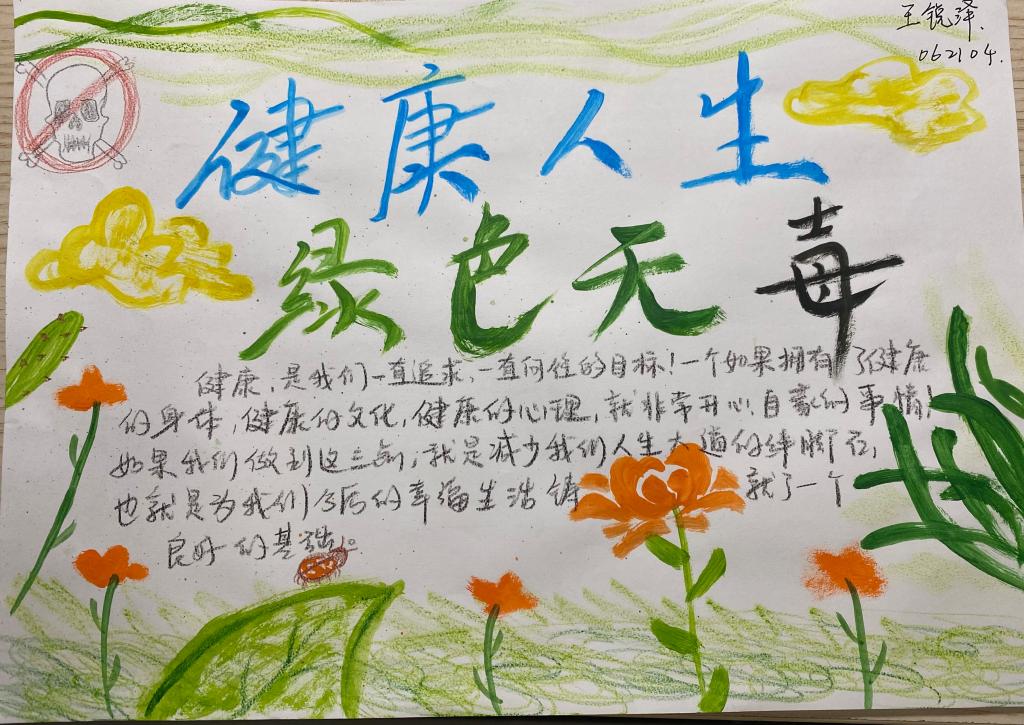 王锐泽.
062104.
健康人生
绿色无毒
健康,是我们一直追求,一直向往的目标!一个如果拥有了健康
的身体,健康的文化,健康的心理,就非常开心,自豪的事情!
如果我们做到这三点,就是减少我们人生大道的绊脚石,
也就是为我们今后的幸福生活铸就了一个
良好的基础。